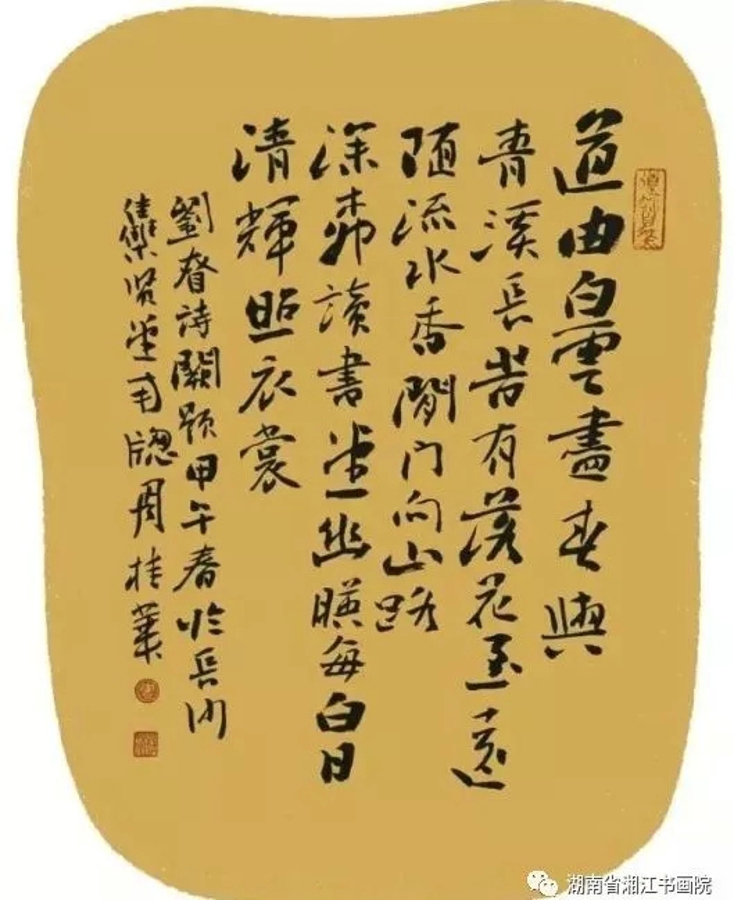 道由白雲盡春與
青溪長旹有落花至遠
隨流水香閒門向山路
深桺讀書堂幽暎每白日
清輝照衣裳
劉眘詩闕題甲午春於長沙
樂賢堂南牕周桂華
湖南省湘江书画院